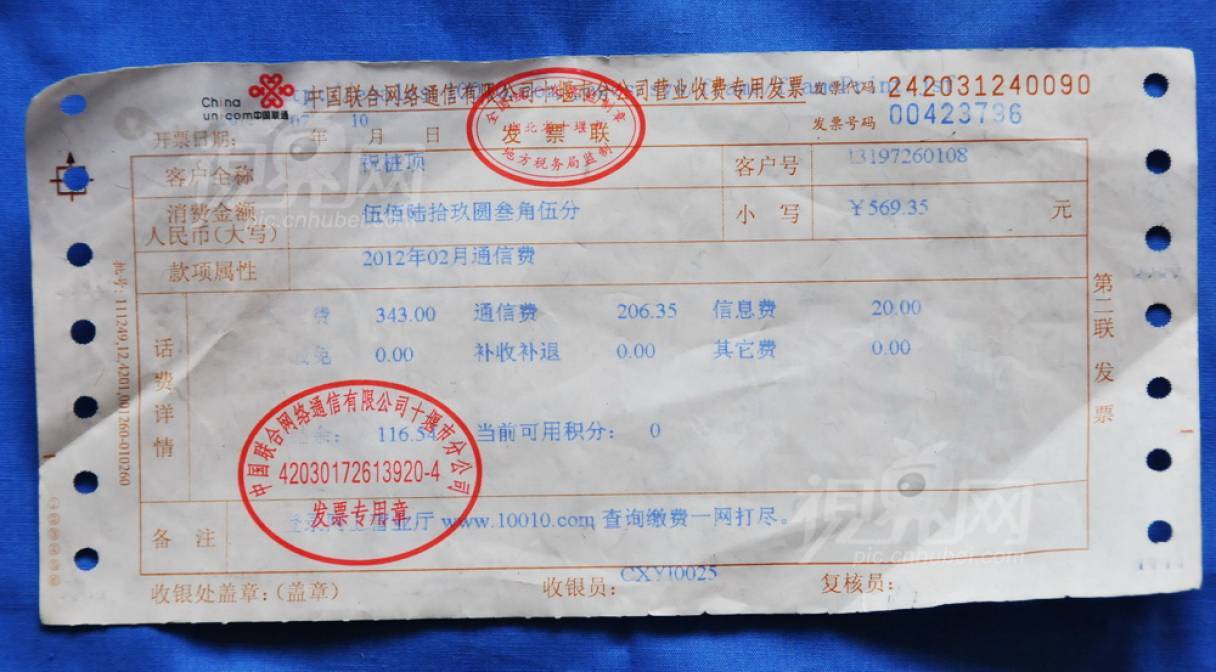 China
unicom中国联通
中国联合网络通信有限公司十堰市分公司营业收费专用发票
发票代码 242031240090
发票号码 00423736
发票联
地方税务局监制
开票日期: 年 10 月 日
客户全称 祝桩项 客户号 13197260108
消费金额
人民币(大写) 伍佰陆拾玖圆叁角伍分 小写 ￥569.35 元
款项属性 2012年02月通信费
话费详情
费 343.00 通信费 206.35 信息费 20.00
免 0.00 补收补退 0.00 其它费 0.00
余: 116.54 当前可用积分: 0
中国联合网络通信有限公司十堰市分公司
42030172613920-4
发票专用章
备注 营业厅 www.10010.com 查询缴费一网打尽。
收银处盖章:(盖章) 收银员: CXYJ0025 复核员:
第二联发票
视界网
pic.cnhubei.com
视界网
pic.cnhubei.com